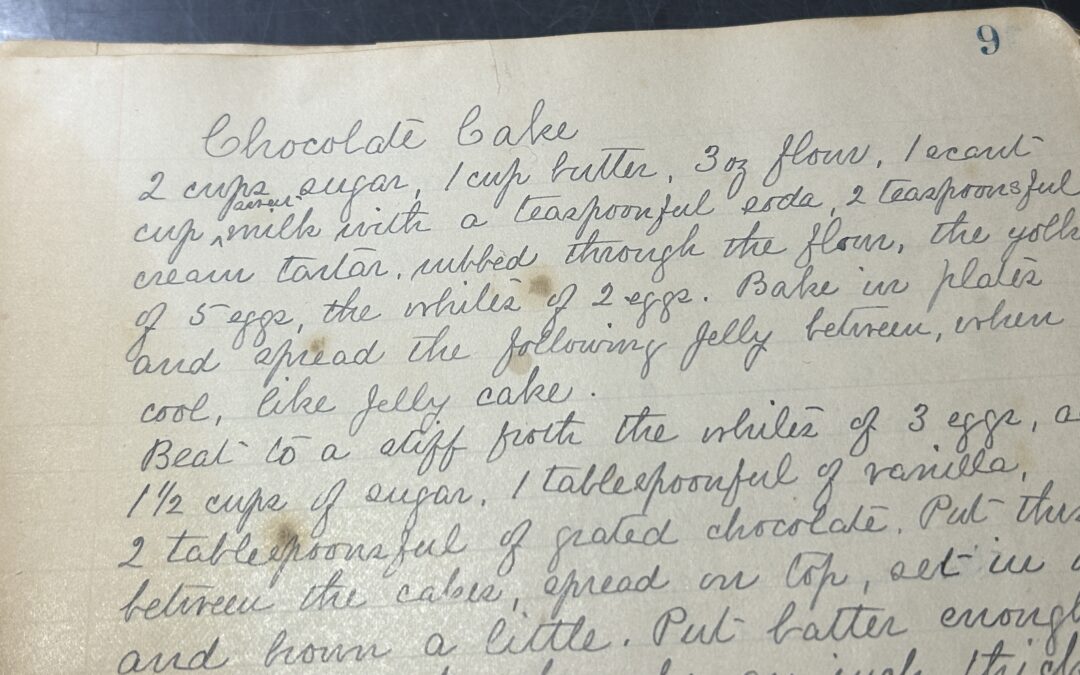 9
Chocolate Cake
2 cups sugar, 1 cup butter, 3 oz flour, 1 scant
cup sweet milk with a teaspoonful soda, 2 teaspoonsful
cream tartar, rubbed through the flour, the yolk
of 5 eggs, the whites of 2 eggs. Bake in plates
and spread the following Jelly between, when
cool, like Jelly cake.
Beat to a stiff froth the whites of 3 eggs, a
1 1/2 cups of sugar, 1 tablespoonful of vanilla,
2 tablespoonsful of grated chocolate. Put this
between the cakes, spread on top, set in
and brown a little. Put batter enough
an inch thick